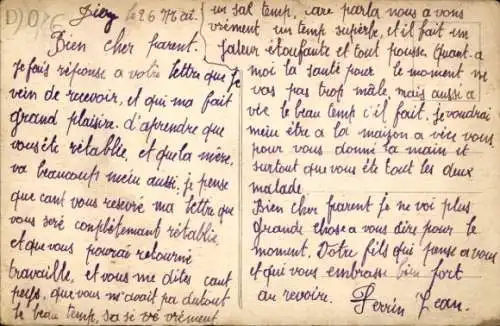 Dijon, le 26 Mai.
Bien cher parent.
Je fais réponse a votre lettre que je
vein de recevoir, et qui ma fait
grand plaisire. d'aprendre que
vous ête rétablie, et que la mère,
va beaucoup mein aussi. je pense
que cant vous resevré ma lettre que
vous seré complètemant rétablie,
et que vous pourai retourné
travaille, et vous me dites cant
perfs, que vous m'avait pa
le beau temp, sa si vé vrément
un sal temp, care parla nous a vons
vrément un temp superbe, et il fait un
chaleur étoufante et tout pousse. Quant. a
moi la santé pour le moment ne
vas pas trop mâle, mais aussi a
vic le beau temp c'il fait. je voudrai
mein être a la maison a vice vous,
pour vous donné la main et
surtout que vous éte tout les deux
malade.
Bien cher parent je ne voi plus
grande chose a vous dire pour le
moment. Votre fils qui pense a vous
et qui vous embrasse bien fort
au revoire. Perrin Jean.